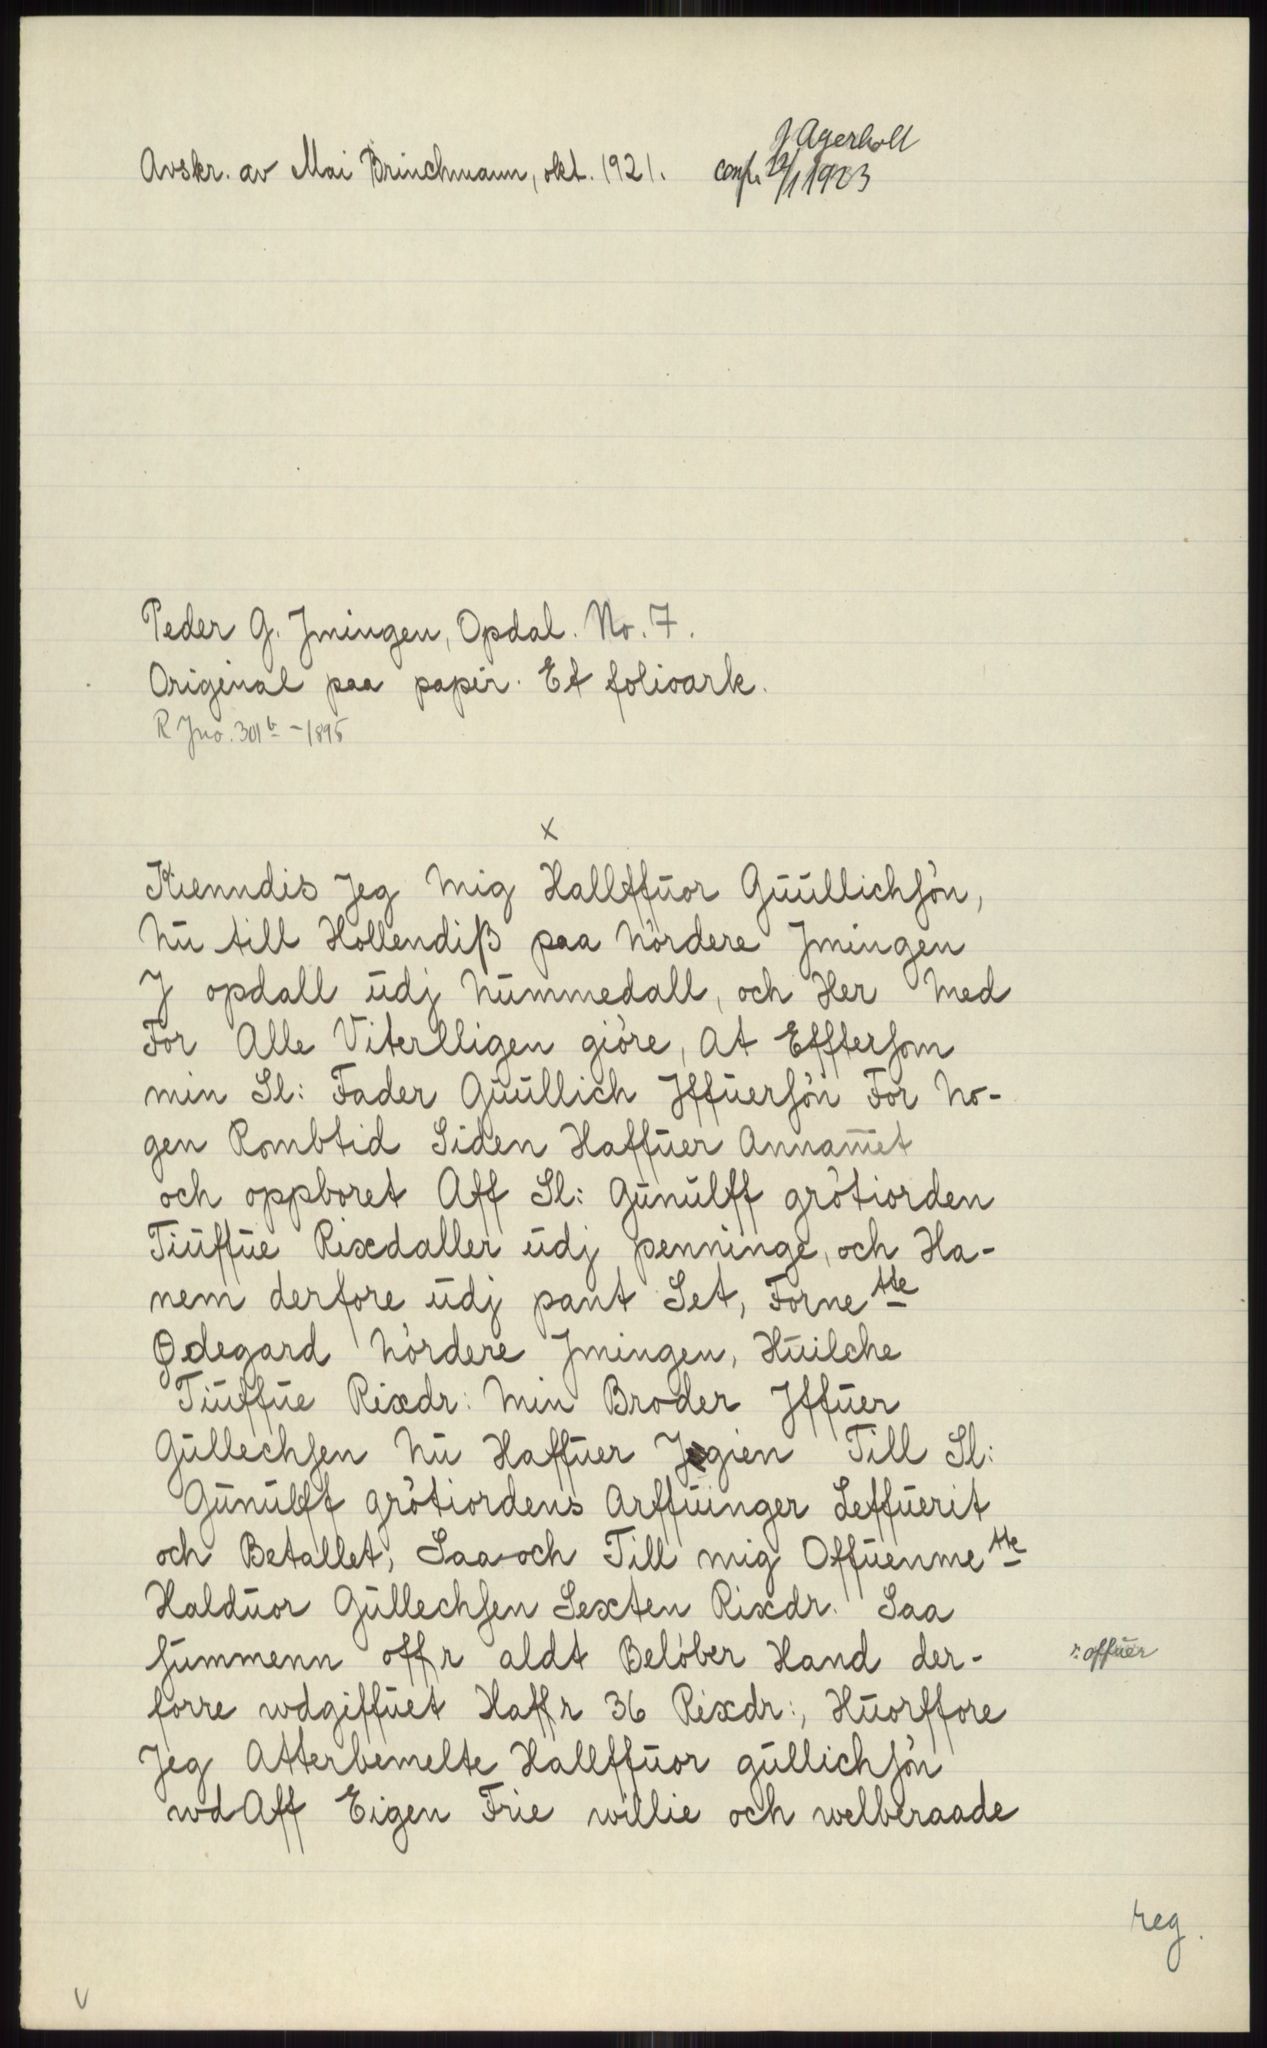 Avskr. av Mai Brinchmann, okt. 1921.
J Agerholt
conf. 22/1 1923
Peder G. Jmingen, Opdal. No. 7.
Original paa papir. Et folioark.
R Jno. 301b – 1895
x
Kienndis Jeg Mig Hallffŭor Gŭŭllichsön,
Nŭ till Hollendiß paa Nördere Jmingen
J opdall ŭdj Nŭmmedall, och Her Med
For Alle Viterlligen giöre, At Efftersom
min Sl: Fader Gŭŭllich Jffŭersön For No-
gen Rombtid Siden Haffŭer Annam̅et
och oppboret Aff Sl: Gŭnŭlff grötiorden
Tiŭffŭe Rixdaller ŭdj penninge, och Ha-
nem derfore ŭdj pant Set, Forne tte
Ødegard Nördere Jmingen, Hŭilche
Tiŭffŭe Rixdr: Min Broder Jffŭer
Gŭllechsen Nŭ Haffŭer Jgien Till Sl:
Gŭnŭlff grötiordens Arffŭinger Leffŭerit
och Betallet, Saa och Till mig Offŭenme tte
Haldŭor Gŭllechsen Sexten Rixdr. Saa
sŭmmenn offr aldt Belöber Hand der-
forre wdgiffŭet Haffr 36 Rixdr:, Hŭorffore
Jeg Atterbemelte Hallffŭor gŭllichsön
wd Aff Eigen Frie willie och welberaade
ɔ: offŭer
reg.
v